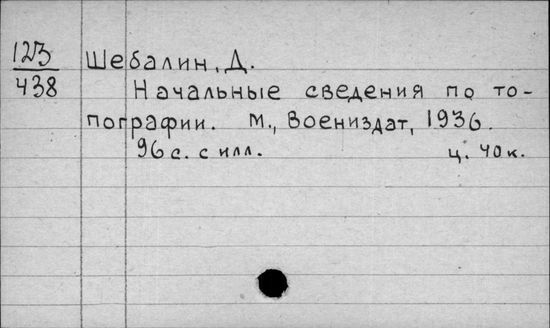 123
438
Шебалин, Д.
Начальные сведения по то-
пографии. М., Воениздат, 1936.
96 с. с илл. ц. 40 к.